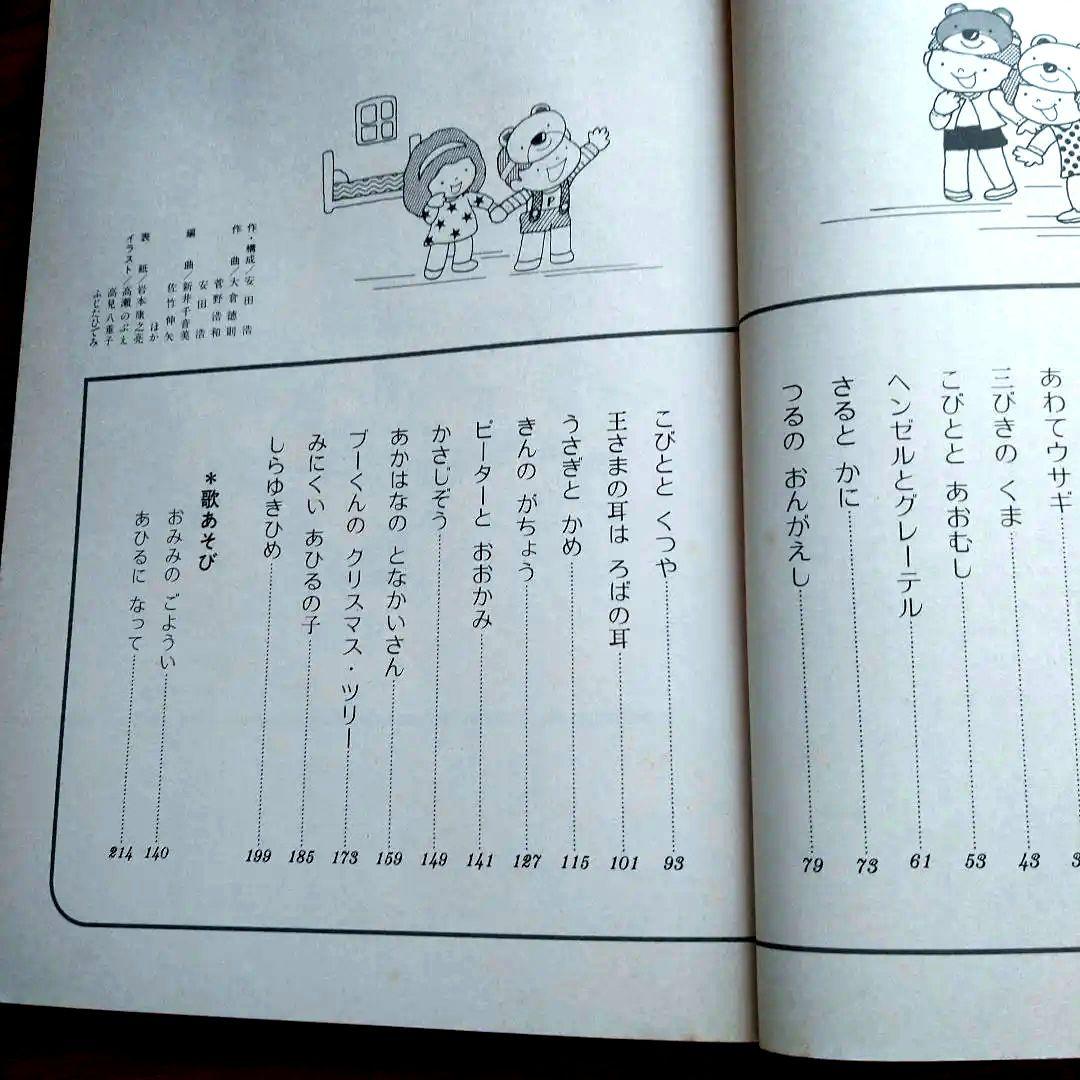 あわてウサギ
三びきの くま 43
こびとと あおむし 53
ヘンゼルとグレーテル 61
さると かに 73
つるの おんがえし 79
こびとと くつや 93
王さまの耳は ろばの耳 101
うさぎと かめ 115
きんの がちょう 127
ピーターと おおかみ 141
かさじぞう 149
あかはなの となかいさん 159
ブーくんの クリスマス・ツリー 173
みにくい あひるの子 185
しらゆきひめ 199
*歌あそび
おみみの ごようい 140
あひるに なって 214
作・構成/安田 浩
作 曲/大倉徳則
菅野浩和
安田 浩
編 曲/新井千音美
佐竹伸矢
ほか
表 紙/岩本康之亮
イラスト/高瀬のぶえ
高見八重子
ふじたひでみ
P